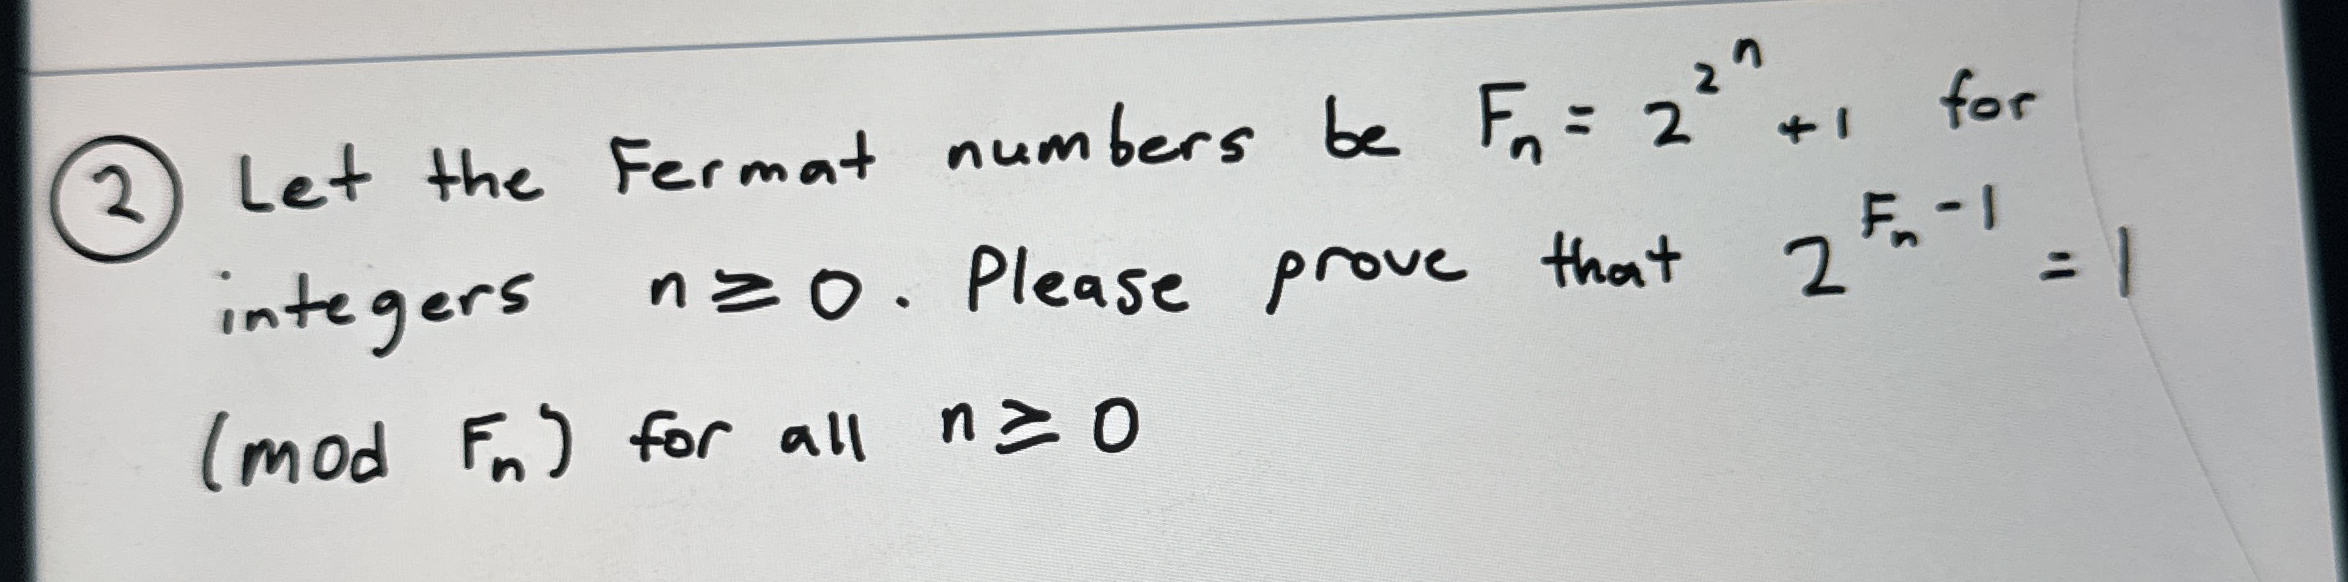 ② Let the Fermat numbers be Fₙ = 2^2^n + 1 for
integers n ≥ 0. Please prove that 2^(Fₙ - 1) = 1
(mod Fₙ) for all n ≥ 0